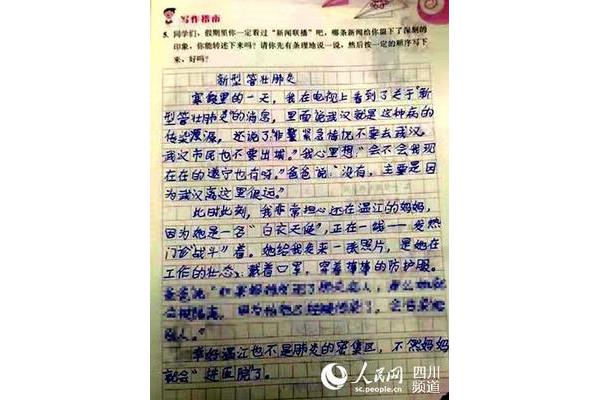 写作指南
5. 同学们，假期里你一定看过“新闻联播”吧，哪条新闻给你留下了深刻的
印象，你能转述下来吗？请你先有条理地说一说，然后按一定的顺序写下
来，好吗？
新型管壮肺炎
寒假里的一天，我在电视上看到了关于“新
型管壮肺炎”的消息，里面说武汉就是这种病的
传染源，还说了非紧急情况不要去武汉，
武汉市民也不要出城。”我心里想：“会不会我现
在在的遂宁也有呀。”爸爸说：“没有，主要是因
为武汉离这里很远。”
此时此刻，我非常担心还在温江的妈妈，
因为她是一名“白衣天使”，正在一线——发热
门诊“战斗”着。她给我发来一张照片，是她在
工作的壮态：戴着口罩，穿着薄薄的防护服。
幸好温江也不是肺炎的密集区，不然妈妈
就会“进医院”了。
人民网 四川
频道
sc.people.cn